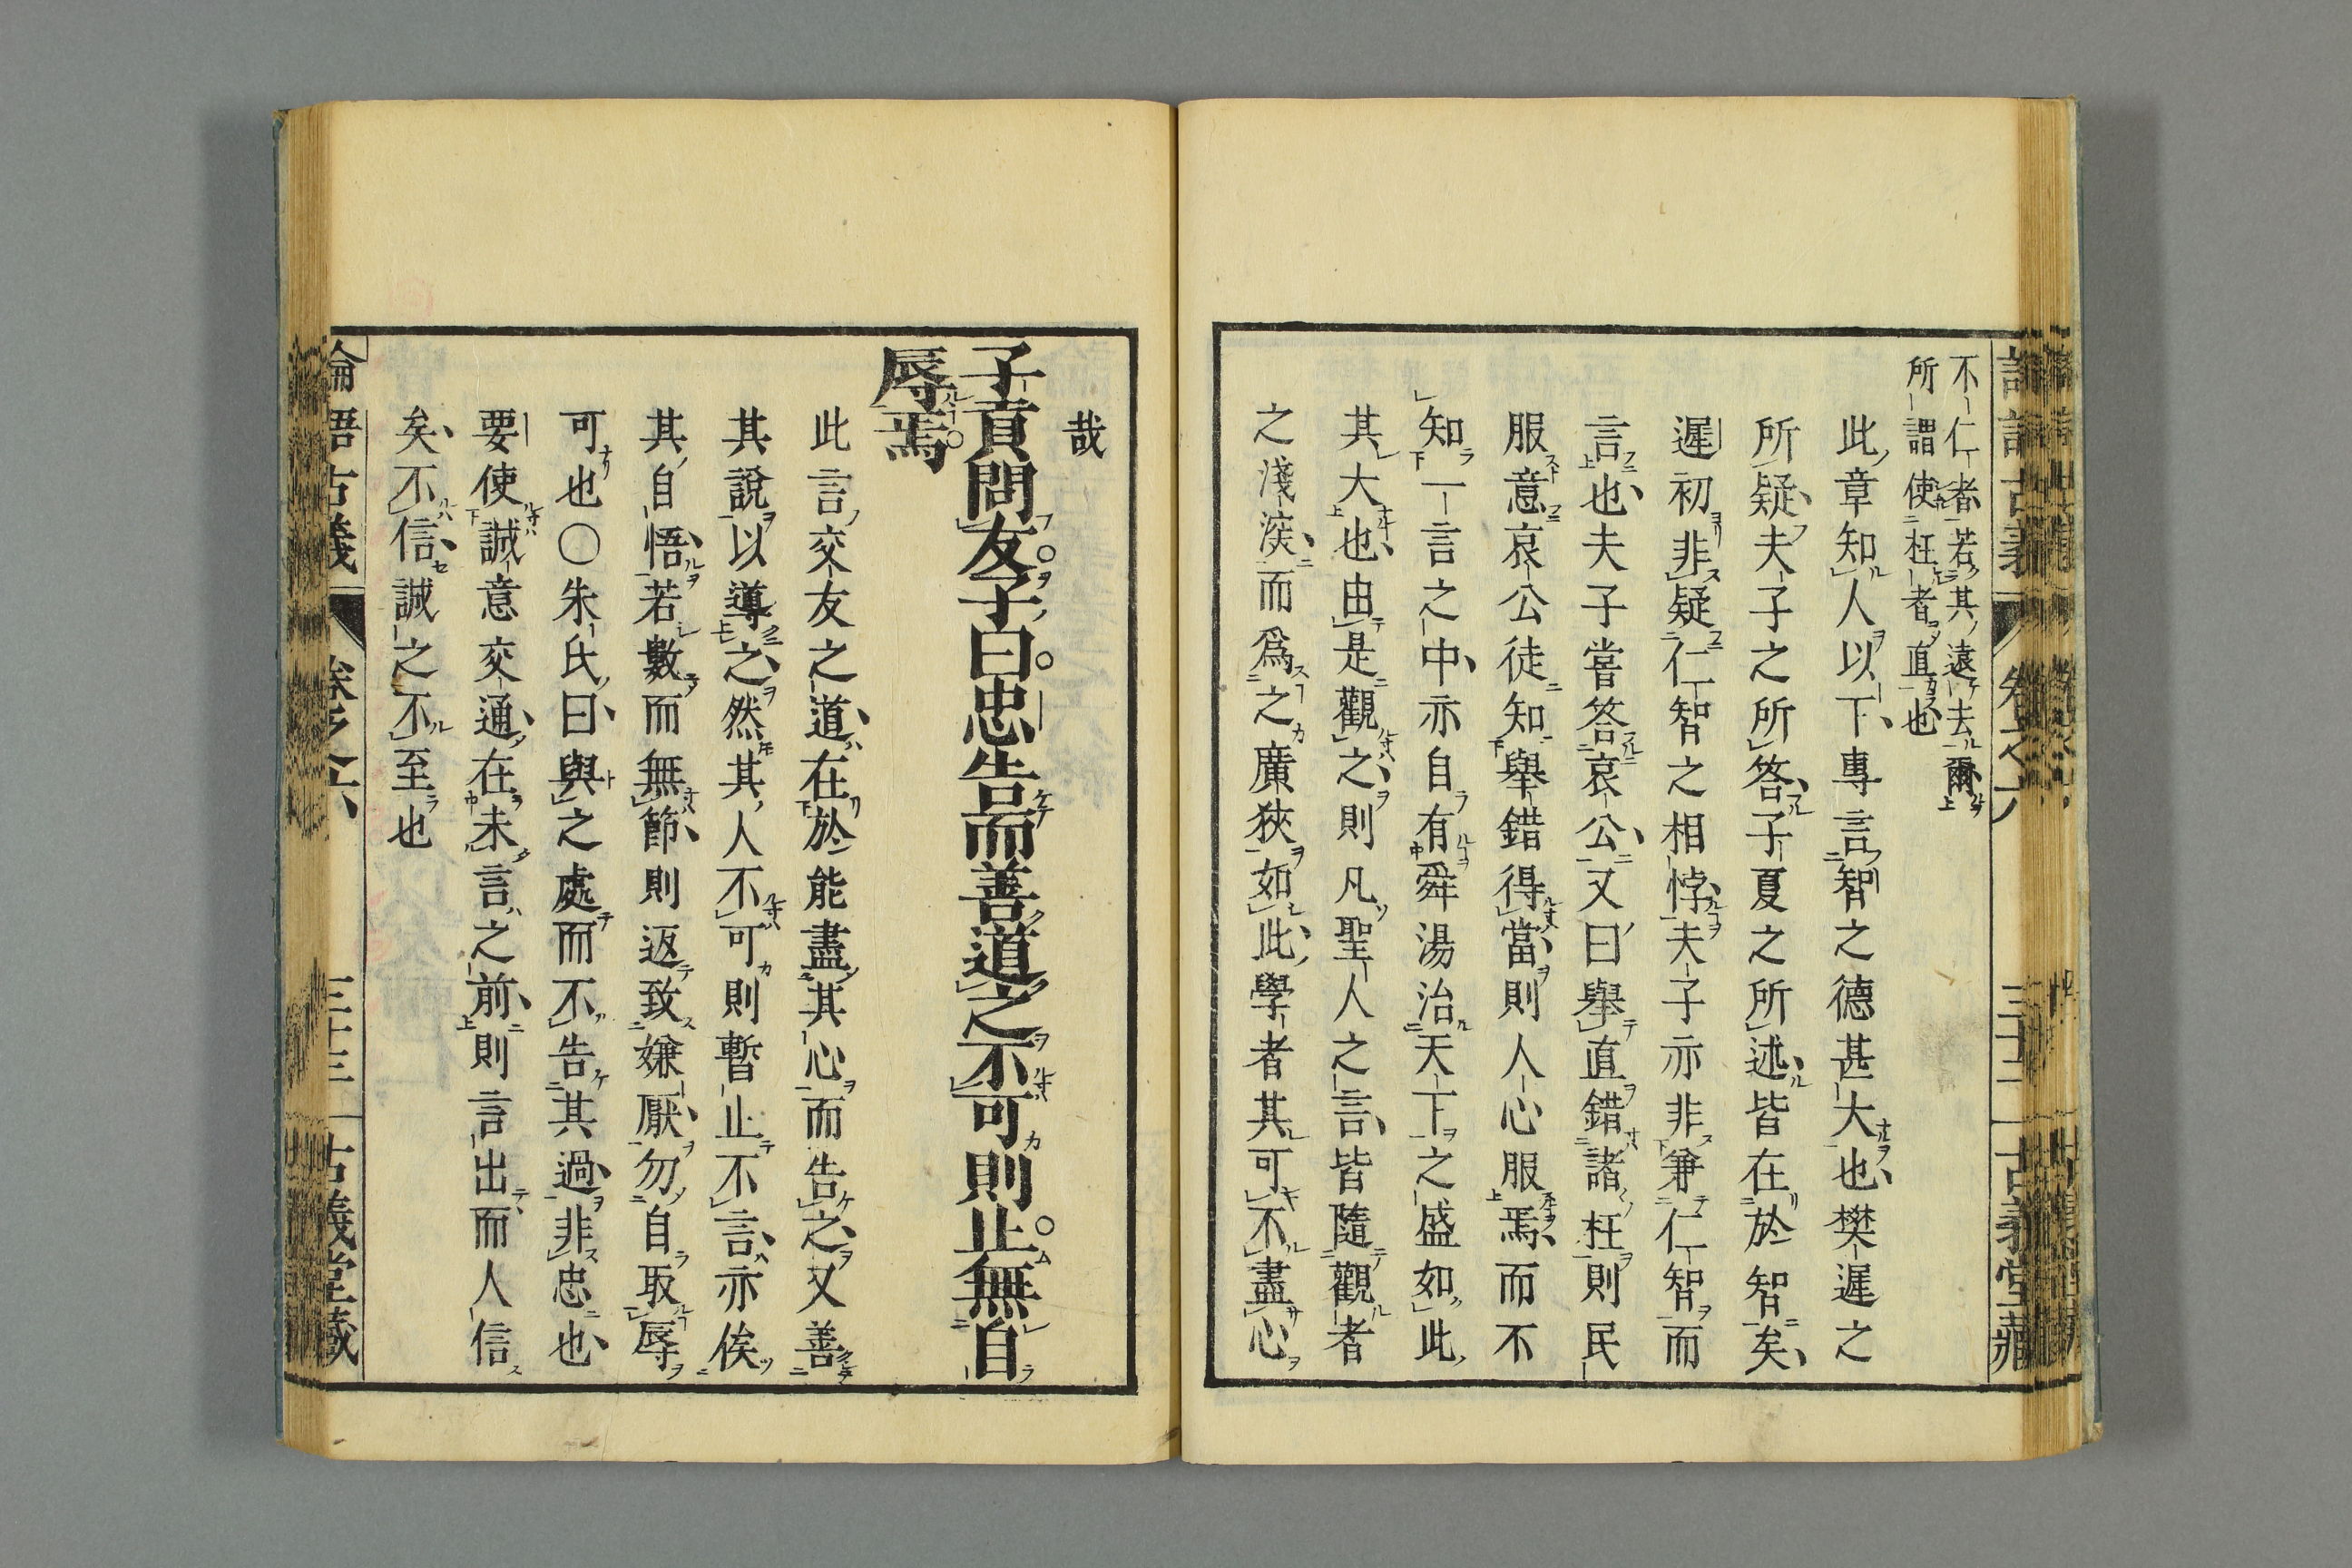 不仁者若其遠去爾
所謂使枉者直也
此章知人以下專言智之德甚大也樊遲之
所疑夫子之所答子夏之所述皆在於智矣
遲初非疑仁智之相悖夫子亦非兼仁智而
言也夫子嘗答哀公又曰舉直錯諸枉則民
服意哀公徒知舉錯得當則人心服焉而不
知一言之中亦自有舜湯治天下之盛如此
其大也由是觀之則凡聖人之言皆隨觀者
之淺深而爲之廣狹如此學者其可不盡心
哉
子貢問友子曰忠告而善道之不可則止無自
辱焉
此言交友之道在於能盡其心而告之又善
其說以導之然其人不可則暫止不言亦俟
其自悟若數而無節則返致嫌厭勿自取辱
可也〇朱氏曰與之處而不告其過非忠也
要使誠意交通在未言之前則言出而人信
矣不信誠之不至也
論語古義 卷之六 三十三 古義堂藏